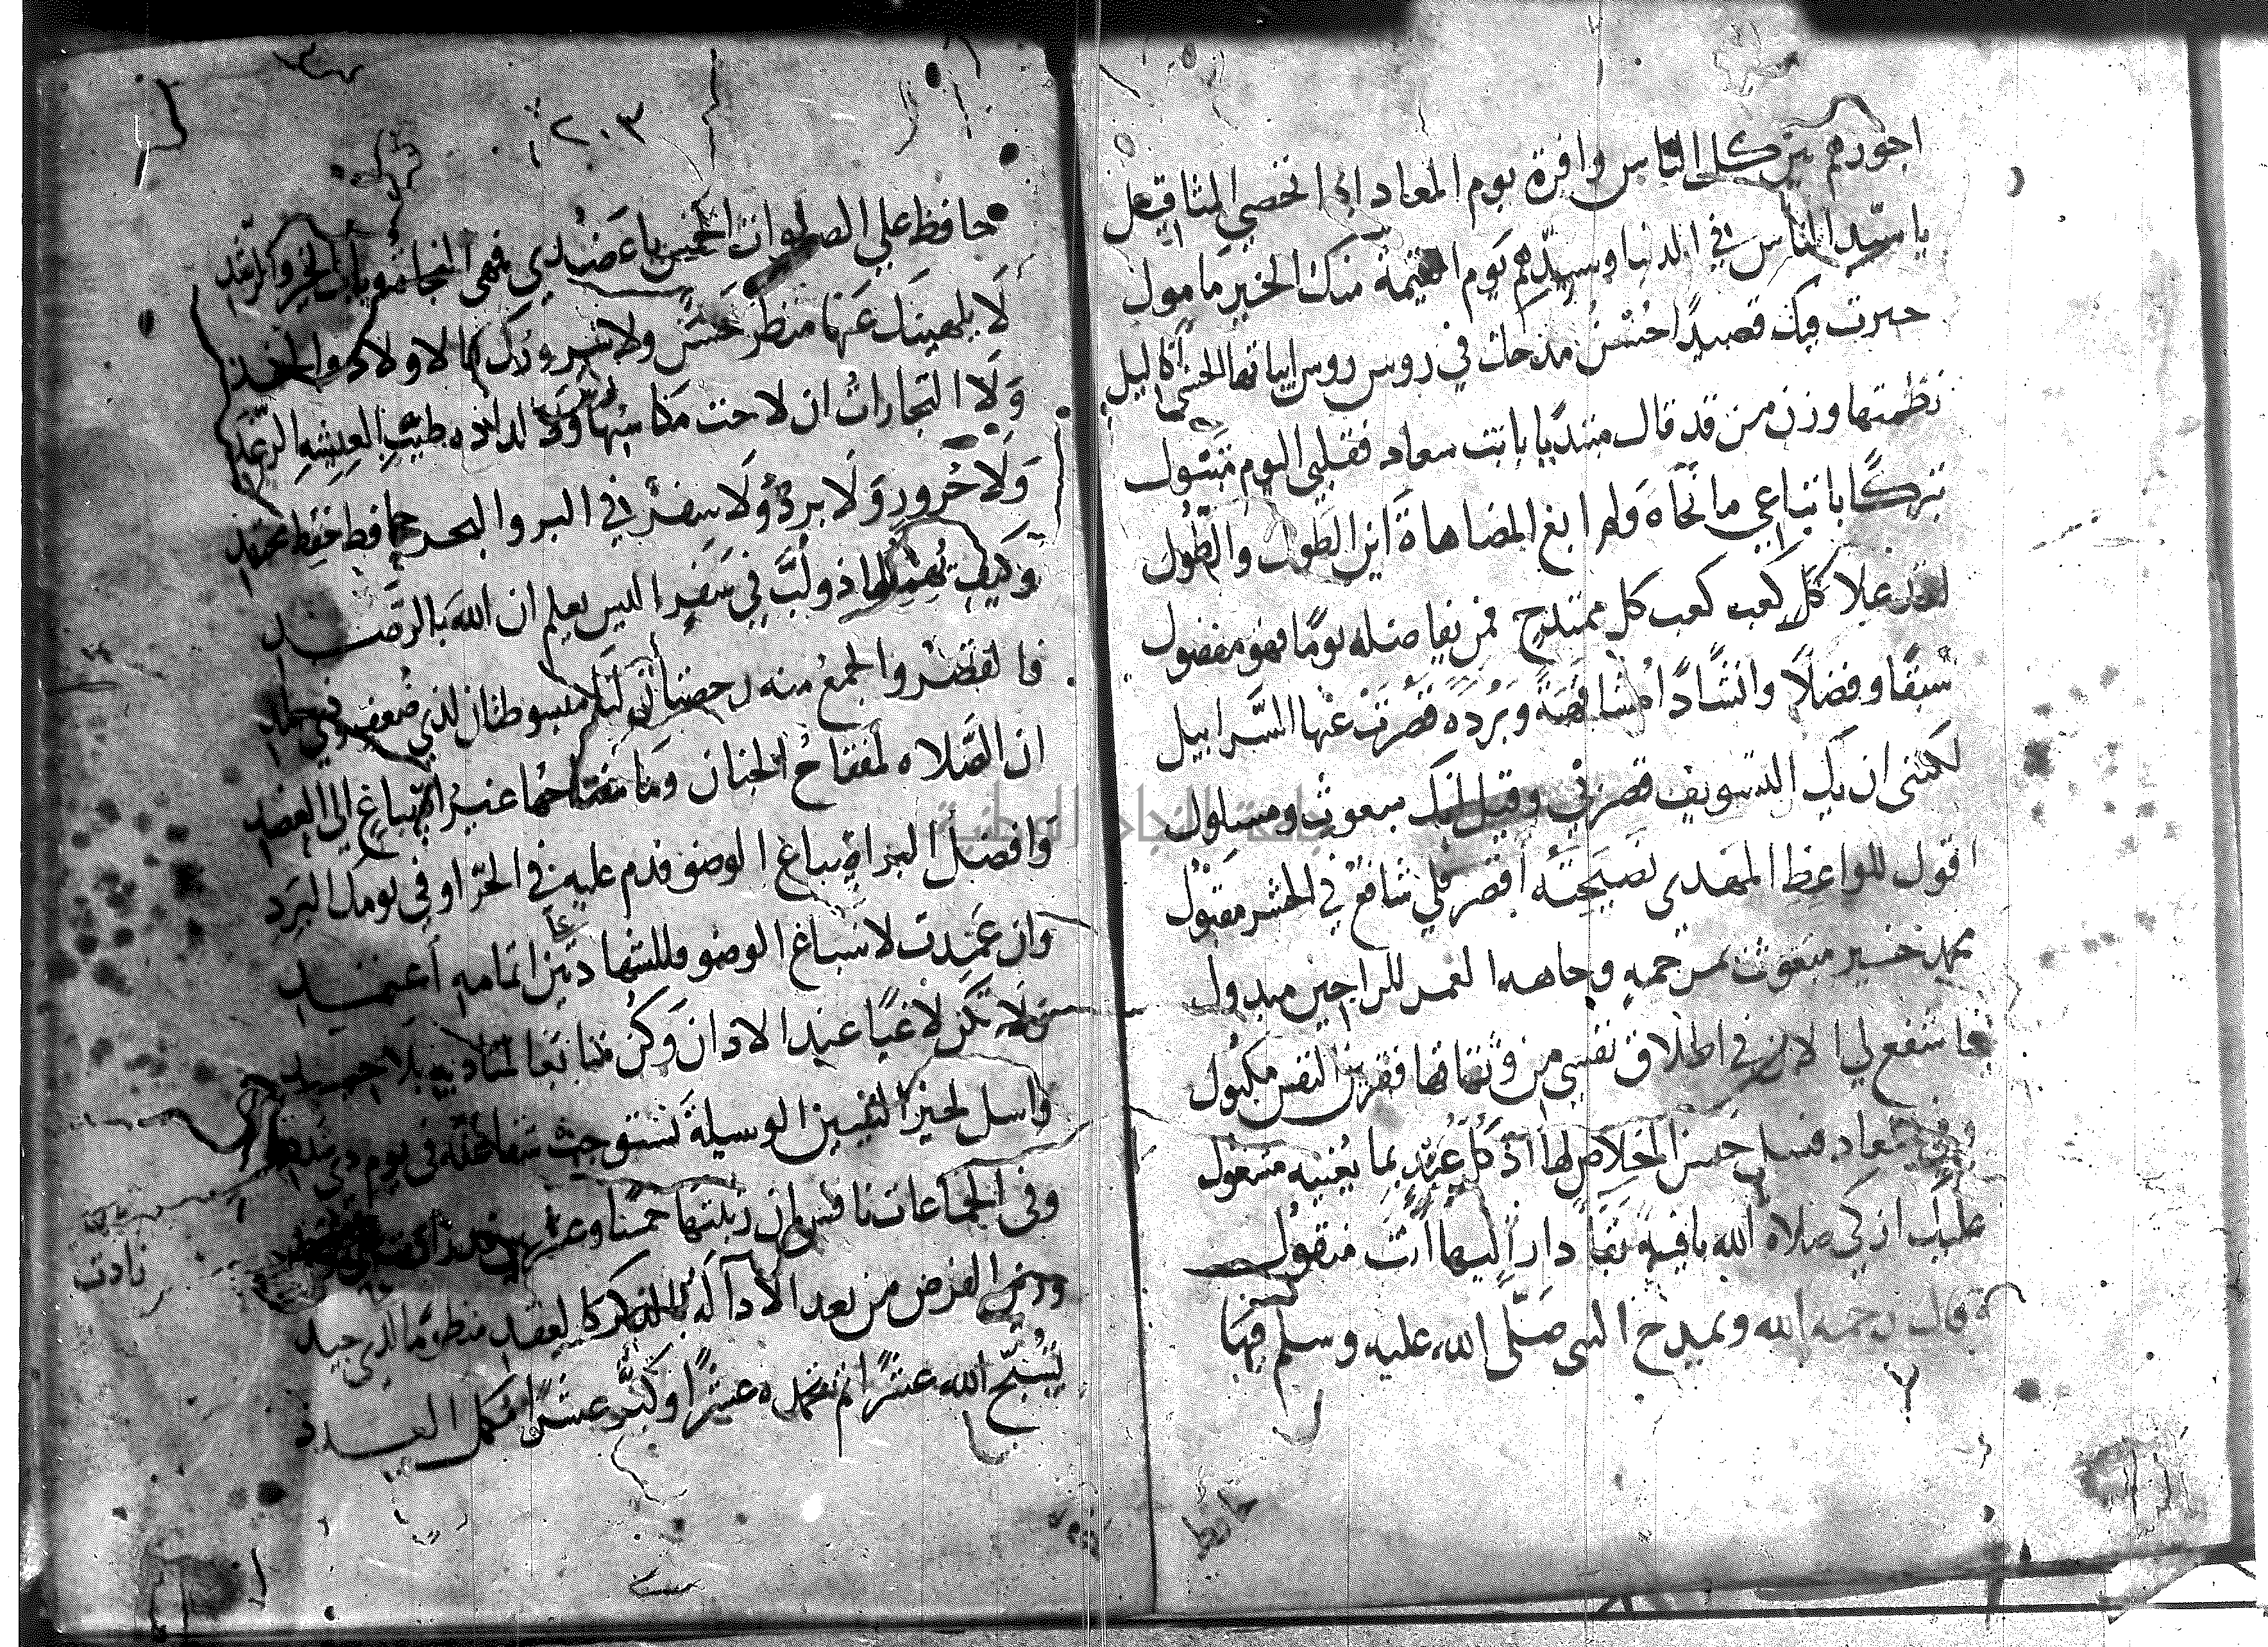 اجورهم بين كل الناس وافرة يوم المعاد اذا تحصى المثاقيل
يا سيد الناس في الدنيا وسيدهم يوم القيمة منك الخير مامول
حبرت فيك قصيدًا احسن مدحك في روس ابياتها الحسنى اكاليل
نظمتها وزن من قد قال مبتديا بانت سعاد فقلبي اليوم متبول
تبركًا باتباعي ما نحاه ولم ابغ المضاهاة اين الطَول والطُول
لقد علا كل كعب كعب كل ممتدح فمن يفاضله يومًا فهو مفضول
سبقًا وفضلًا وانشادًا مشافهة وبرده قصرت عنها السرابيل
لكنني ان يك التسويف قصرني وقيل انك مبعوث ومسلول
اقول للواعظ المهدي نصيحته أقصر فلي شافع في الحشر مقبول
محمد خير مبعوث بمرحمه وجاهه الغمر للراجين مبدول
فاشفع لي الان في اطلاق نفسي من وثقاتها فقرين النفس مكبول
وفي المعاد فسل حسن الخلاص لها اذ كل عبد بما يعنيه مشغول
عليك ازكى صلاة الله باقية بقا دار اليها انت منقول
قال رحمه الله ويمدح النبي صلى الله عليه وسلم فيها
حافظ
٢٠٣
حافظ على الصلوات الخمس يا عضدي فهي النجاة وباب الخير والرشد
لا يلهينك عنها منظر حسن ولا سرورك بالاولاد والحفد
ولا التجارات ان لاحت مكاسبها ولا لذاذه طيب العيشه الرغد
ولا حرور ولا برد ولا سفر في البر والبحر حافظ حفظ مجتهد
وكيف يهملها ذو لب في سفر اليس يعلم ان الله بالرصد
فالقصر والجمع منه رخصتان
ان الصلاه لمفتاح الجنان وما مفتاحها غير اسباغ الى العضد
وافضل البر اسباغ الوضو فدم عليه في الحر او في يومك البرد
وان عمدت لاسباغ الوضو فللشهادتين اتمامه اعتمد
لا تكن لاغيًا عند الاذان وكن متابعا لمناديه بلا
واسل لخير النبيين الوسيلة تستوجب شفاعته في يوم
نادت
وفي الجماعات نافس ان رتبتها خمسًا وعشرين
ودبر الفرض من بعد الادآ له بالذكر كالعقد منظومًا الدى جيد
تسبح الله عشرًا ثم تحمده عشرًا وكبر عشرًا مكمل العدد